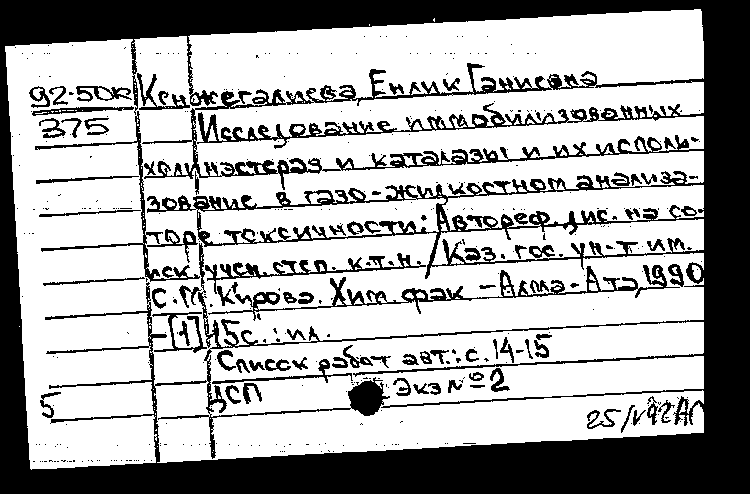 92-50к Кенжегалиева, Енлик Ганиевна
375 Исследование иммобилизованных
холинэстераз и каталазы и их исполь-
зование в газо-жидкостном анализа-
торе токсичности: Автореф. дис. на со-
иск. учен. степ. к.т.н. / Каз. гос. ун-т им.
С.М. Кирова. Хим. фак – Алма-Ата, 1990
–[1] 15с. : ил.
Список работ авт.: с. 14-15
5 ДСП Экз №2
25/IV92